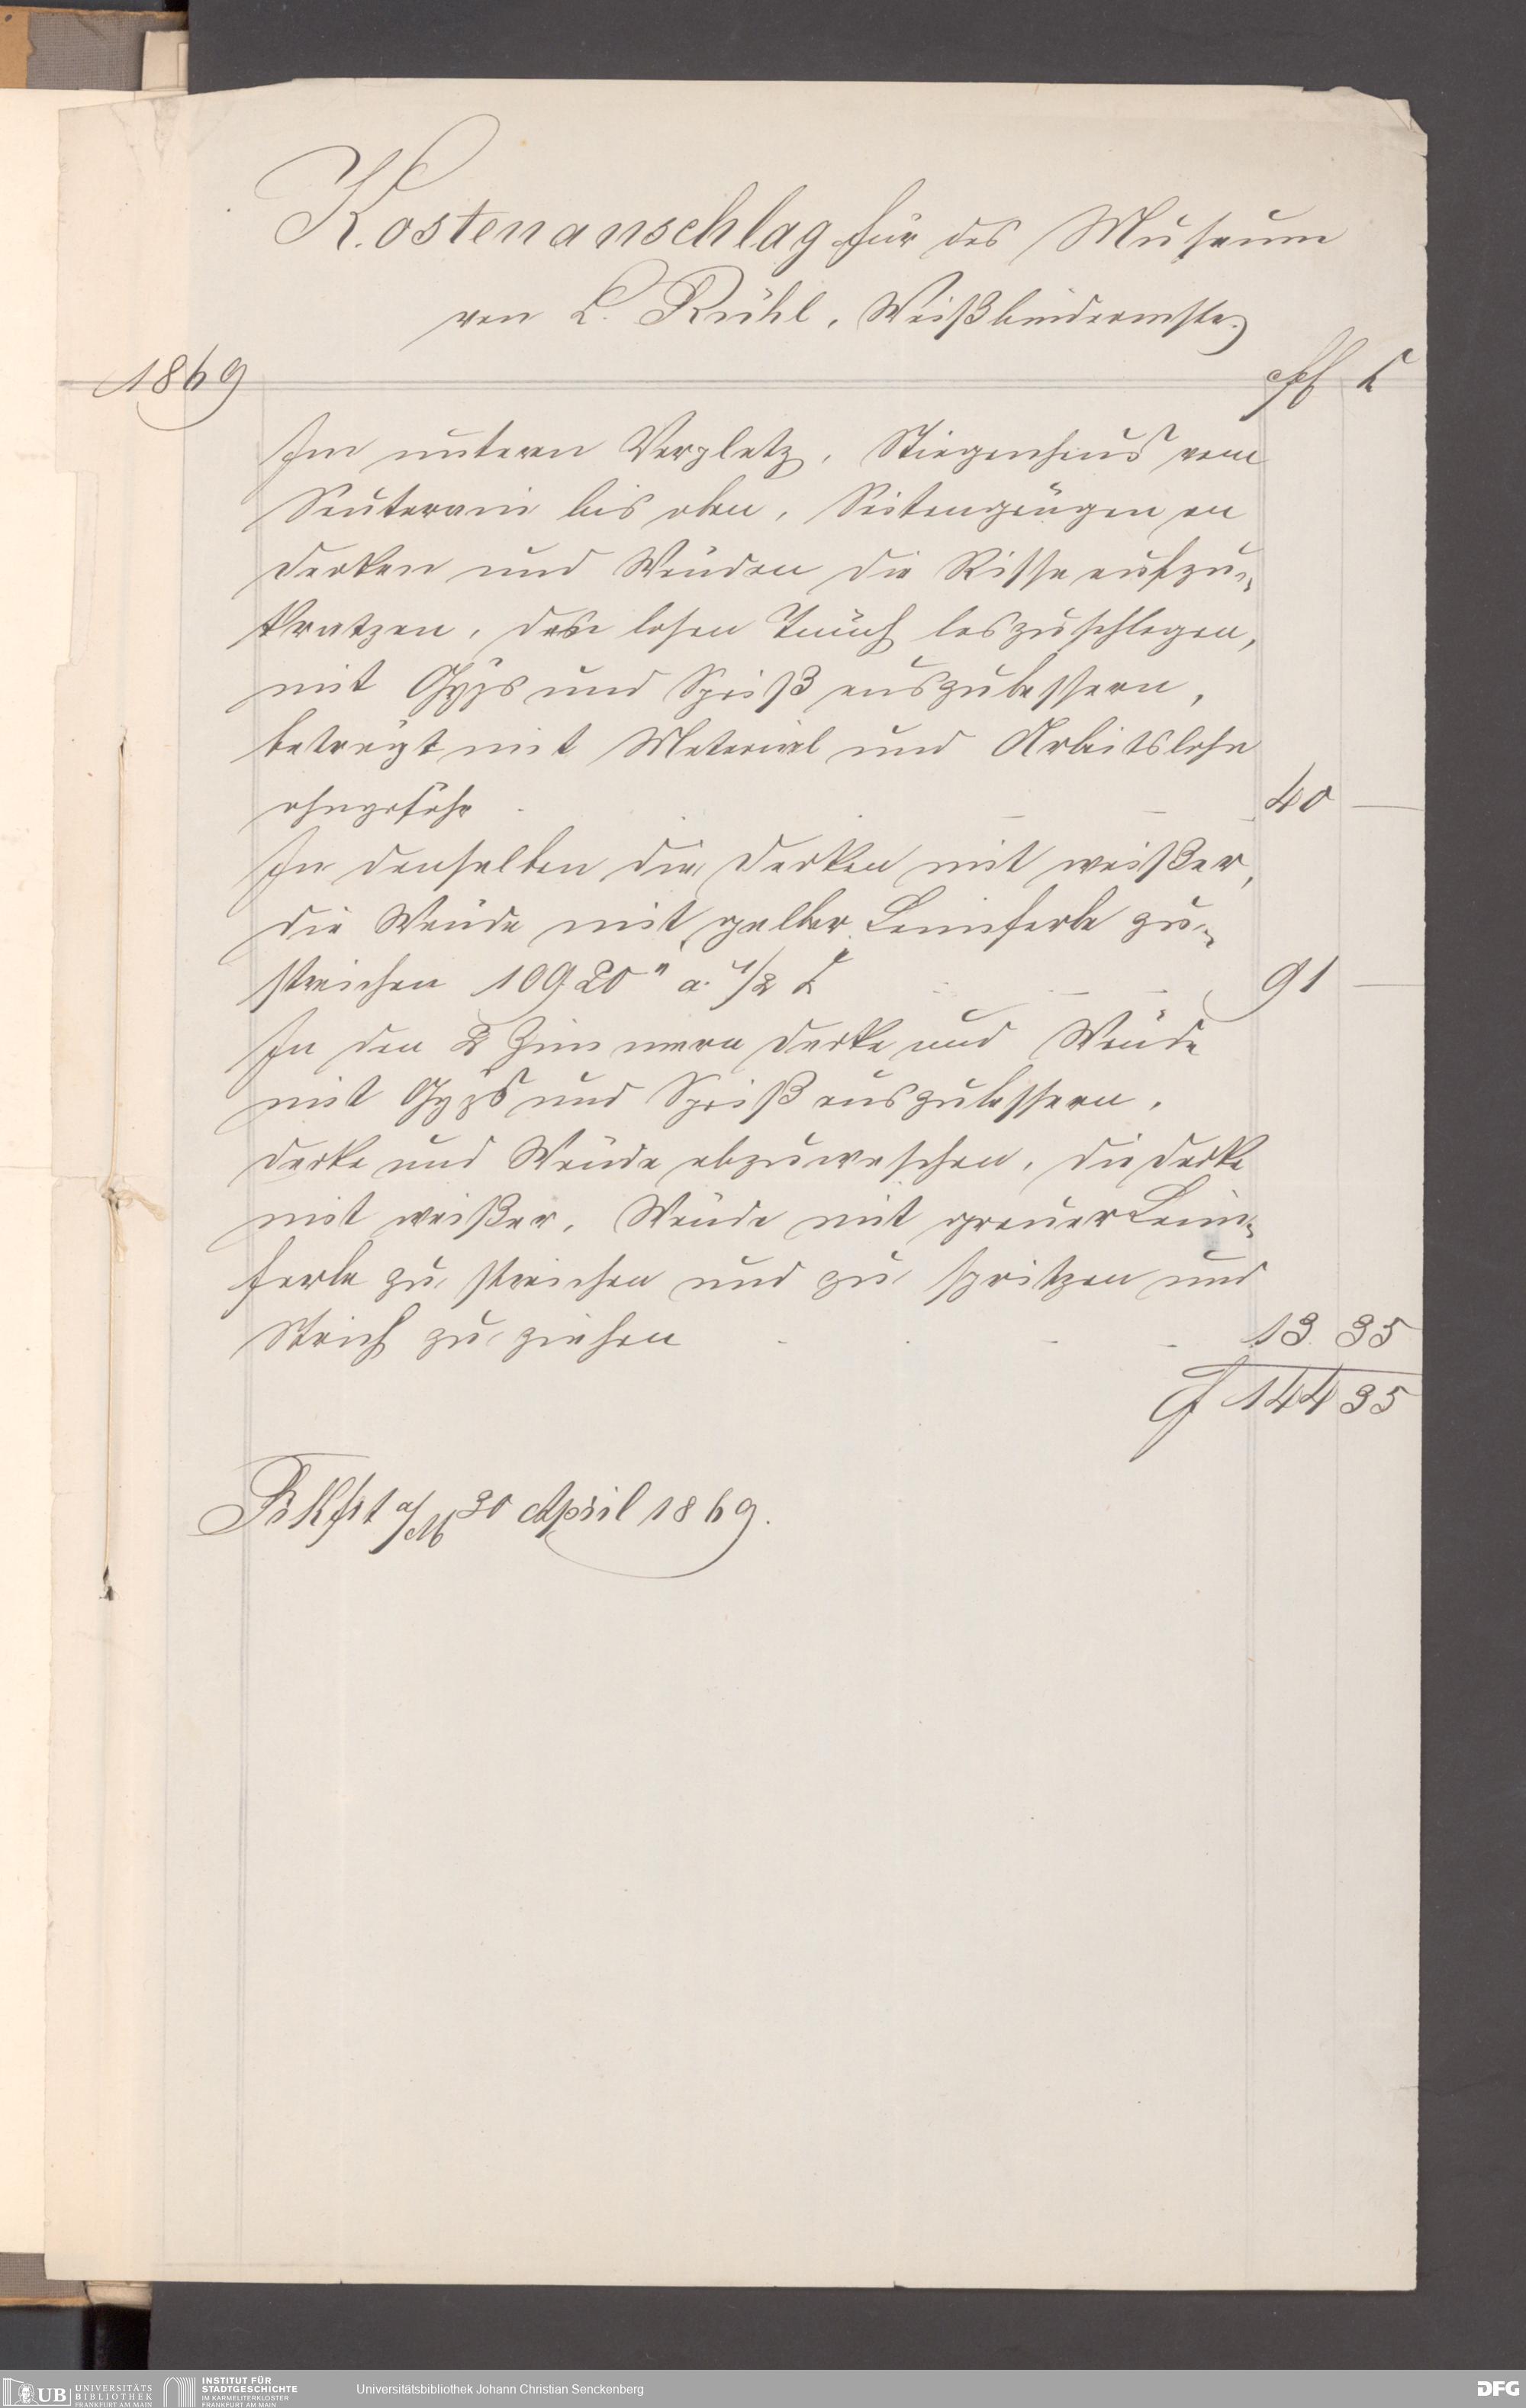 Kostenanschlag für das Museum
von L. Rühl, Weißbindermstr.
1869 ff x
Im untern Vorplatz, Stiegenhaus vom
Souterain bis oben, Seitengängen an
Decken und Wänden die Risse aufzu-
kratzen, den losen Tünch loszuschlagen,
mit Gyps und Speiß auszubessern,
beträgt mit Material und Arbeitslohn
ohngefähr 40 —
In denselben die Decken mit weißer,
die Wände mit gelber Leimfarbe zu
streichen 10920" a. 1/2 x 91 —
In den 2 Zimmern Decke und Wände
mit Gyps und Speiß auszubessern,
Decke und Wände abzuwaschen, die Decke
mit weißer, Wände mit grauer Leim-
farbe zu streichen und zu spritzen und
Strich zu ziehen 13 35
f 144 35
Frkfrt a/M 30 April 1869.
UB UNIVERSITÄTS BIBLIOTHEK FRANKFURT AM MAIN
INSTITUT FÜR STADTGESCHICHTE IM KARMELITERKLOSTER FRANKFURT AM MAIN
Universitätsbibliothek Johann Christian Senckenberg
DFG